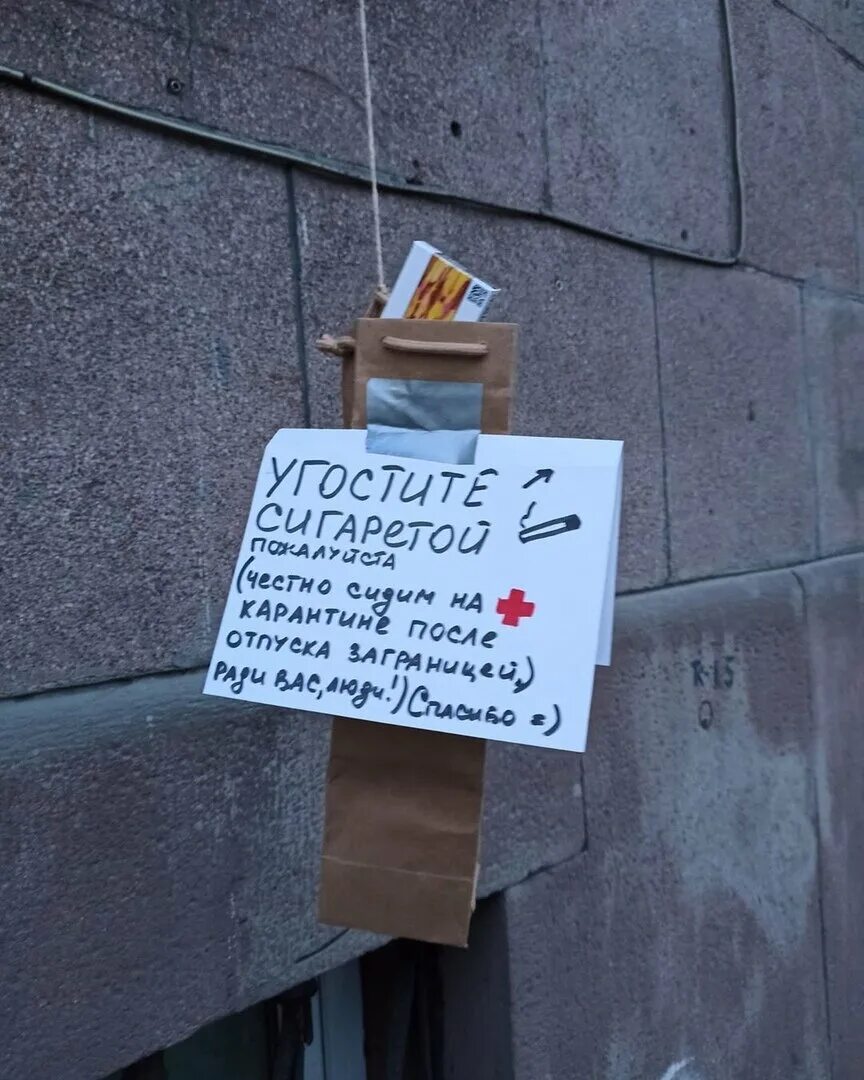 УГОСТИТЕ
СИГАРЕТОЙ
ПОЖАЛУЙСТА
(честно сидим на
КАРАНТИНЕ после
отпуска ЗАГРАНИЦЕЙ,)
РАДИ ВАС, люди!) Спасибо =)
R-15